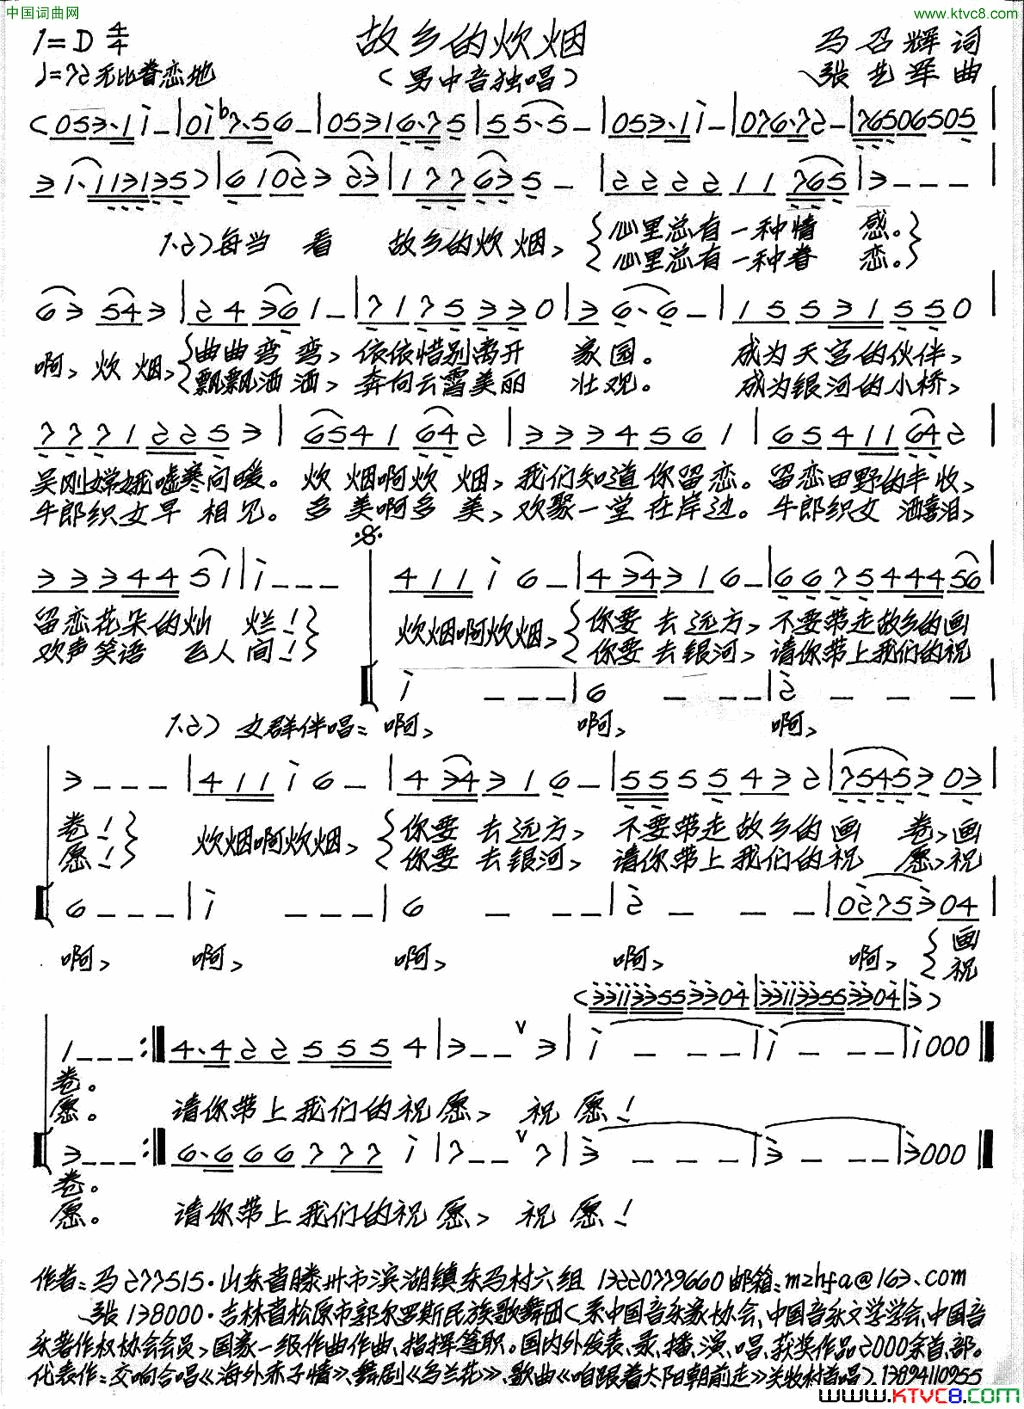 中国词曲网 www.ktvc8.com
1=D 4/4 故乡的炊烟 马召辉 词
♩=72 无比眷恋地 (男中音独唱) 张艺军 曲
(053·1i-|0i♭7·56-|05316·75|55·5-|053·1i-|076·72-|76506505|
31·113135)|61023 23|177635-|222211765|3---|
1.2)每当 看 故乡的炊烟, {心里总有一种情 感。}
{心里总有一种眷 恋。}
63 543|24361-|7175330|36·6-|15531550|
啊, 炊烟, {曲曲弯弯, 依依惜别离开 家园。 成为天宫的伙伴,
{飘飘洒洒, 奔向云霄美丽 壮观。 成为银河的小桥,
77712253|6541642|33345661|65411642|
吴刚嫦娥嘘寒问暖。炊 烟啊炊 烟, 我们知道你留恋。留恋田野的丰收,
牛郎织女早 相见。多 美啊多 美, 欢聚一堂在岸边。牛郎织女 洒喜泪,
3334451|i---|411i6-|434316-|667544456|
留恋花朵的灿 烂!} 炊烟啊炊烟, {你要 去远方, 不要带走故乡的画
欢声笑语 飞人间!} {你要 去银河, 请你带上我们的祝
i---|6---|2---|
1.2) 女群伴唱: 啊, 啊, 啊,
3---|411i6-|434316-|5555432|75453 03|
卷!} 炊烟啊炊烟, {你要 去远方, 不要带走故乡的画 卷, 画
愿!} {你要 去银河, 请你带上我们的祝 愿, 祝
6---|i---|6---|2---|02753 04|
啊, 啊, 啊, 啊, 啊, {画
{祝
(331133553304|331133553304|3)
1---:‖4·4225554|3--∨3|i---|i---|i000‖
卷。
愿。 请你带上我们的祝愿, 祝愿!
3---:‖6·666777i|7--∨7|3---|3---|3000‖
卷。
愿。 请你带上我们的祝愿, 祝愿!
作者:马277515·山东省滕州市滨湖镇东马村六组 13220779660 邮箱:mzhfa@163.com
张138000·吉林省松原市郭尔罗斯民族歌舞团(系中国音乐家协会、中国音乐文学学会、中国音
乐著作权协会会员,国家一级作曲作曲、指挥等职。国内外发表、录、播、演、唱、获奖作品2000余首、部。
代表作:交响合唱《海外赤子情》、舞剧《乌兰花》、歌曲《咱跟着太阳朝前走》关牧村首唱).13894110955
www.KTVC8.com